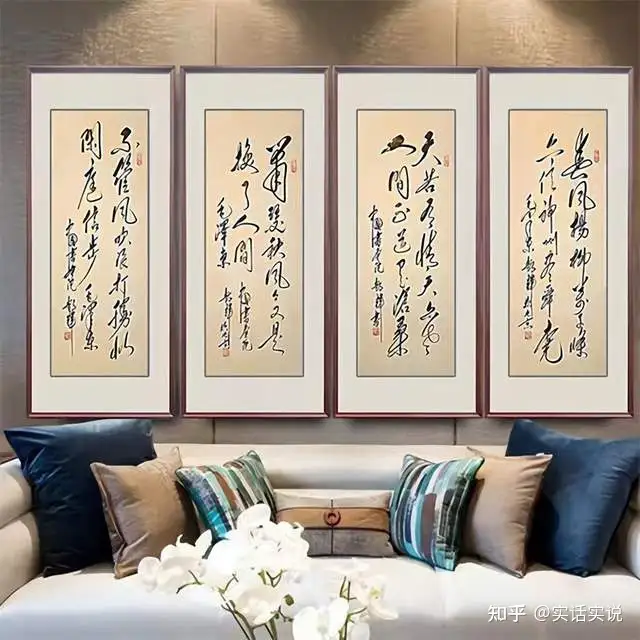 春风杨柳万千条
六亿神州尽舜尧
毛泽东
天若有情天亦老
人间正道是沧桑
萧瑟秋风今又是
换了人间
毛泽东
不管风吹浪打胜似
闲庭信步 毛泽东
知乎 @实话实说